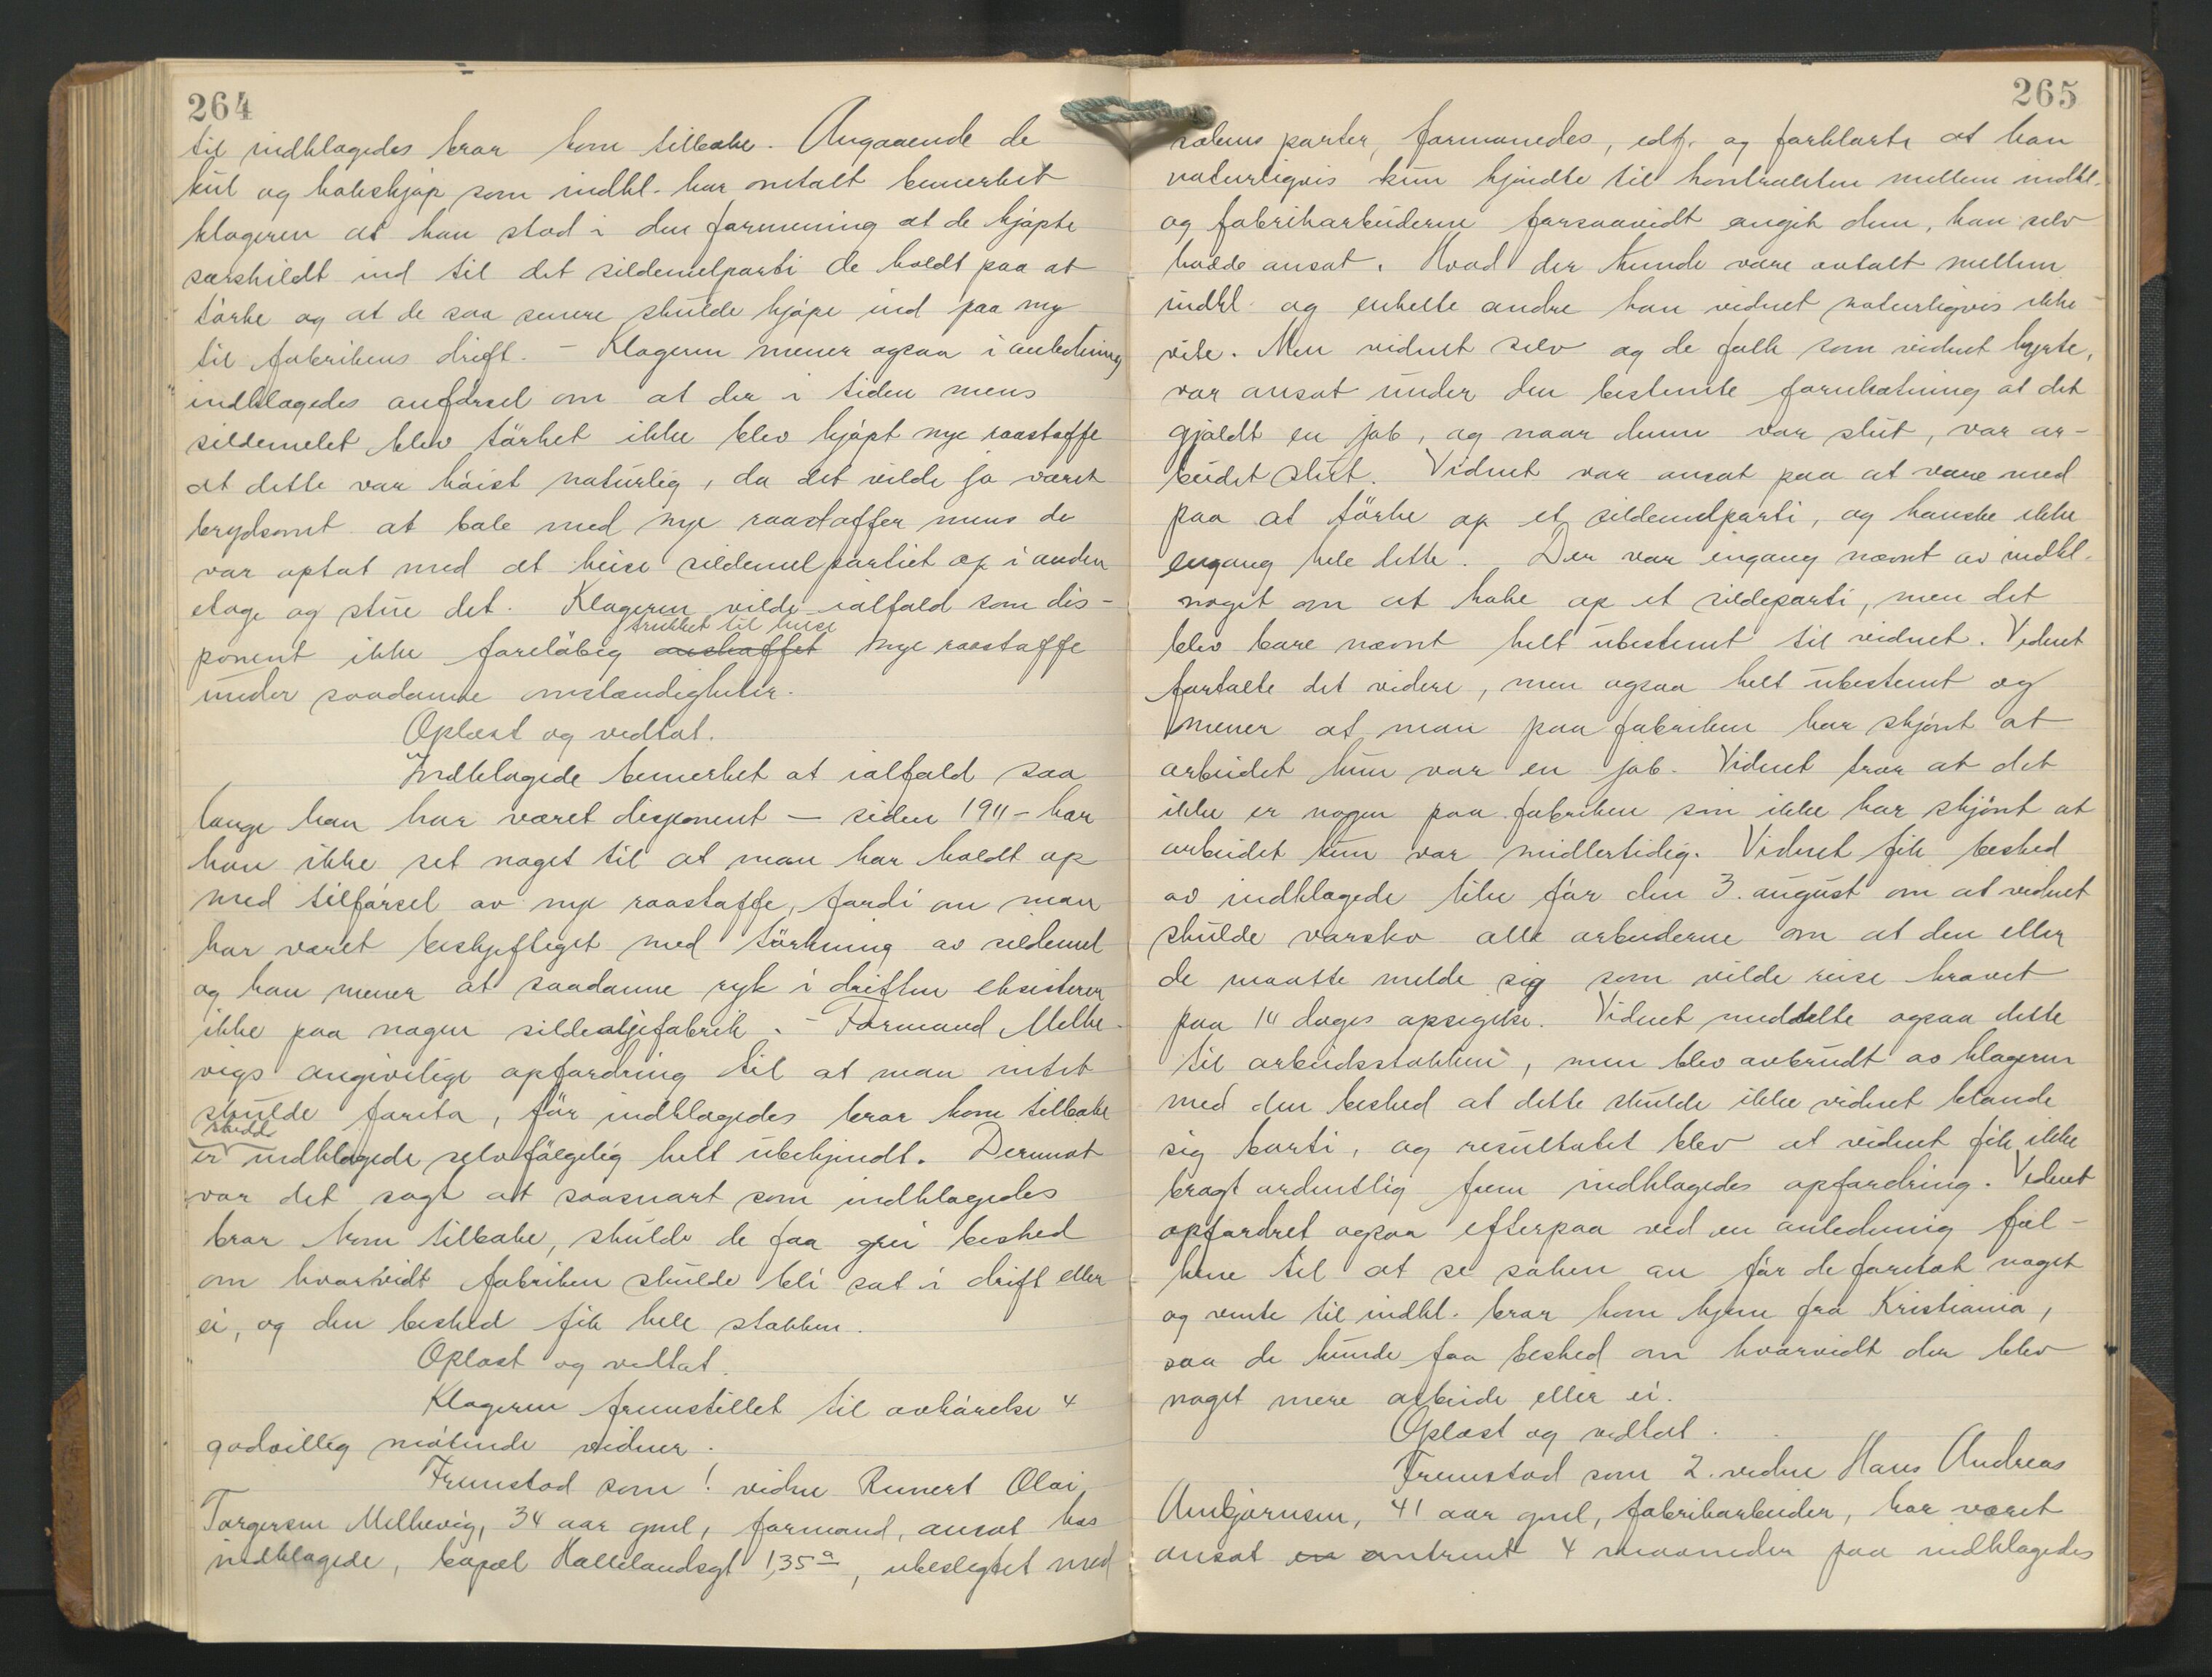 264
til indklagedes bror kom tilbake. Angaaende de
kul og kokskjøp som indkl. har omtalt bemerket
klageren at han stod i den formening at de kjøpte
særskildt ind til det sildemelparti de holdt paa at
tørke og at de saa senere skulde kjøpe ind paa ny
til fabrikens drift. – Klageren mener ogsaa i anledning
indklagedes anførsel om at der i tiden mens
sildemelet blev tørket ikke blev kjøpt nye raastoffe
at dette var høist naturlig, da det vilde jo været
brydsomt at bale med nye raastoffer mens de
var optat med at heise sildemelpartiet op i anden
etage og stue det. Klageren vilde ialfald som dis-
trukket til huse
ponent ikke foreløbig anskaffet nye raastoffe
under saadanne omstændigheter.
Oplæst og vedtat.
Indklagede bemerket at ialfald saa
længe han har været disponent – siden 1911 – har
han ikke set noget til at man har holdt op
med tilførsel av nye raastoffe, fordi om man
har været beskjeftiget med tørkning av sildemel
og han mener at saadanne ryk i driften eksisterer
ikke paa nogen sildeoljefabrik. – Formand Melke-
vigs angivelige opfordring til at man intet
skulde foreta, før indklagedes bror kom tilbake
er indklagede selvfølgelig helt ubekjendt. Derimot
var det sagt at saasnart som indklagedes
bror kom tilbake, skulde de faa grei beshed
om hvorvidt fabriken skulde bli sat i drift eller
ei, og den beshed fik hele stokken.
Oplæst og vedtat.
Klageren fremstillet til avhørelse 4
godvillig møtende vidner.
Fremstod som 1 vidne Runert Olai
Torgersen Melkevig, 34 aar gml, formand, ansat hos
indklagede, bopæl Hallelandsgt 135 a, ubeslegtet med
265
sakens parter, formanedes, edf. og forklarte at han
naturligvis kun kjendte til kontrakten mellem indkl.
og fabrikarbeiderne forsaavidt angik dem, han selv
hadde ansat. Hvad der kunde være avtalt mellem
indkl. og enkelte andre kan vidnet naturligvis ikke
vite. Men vidnet selv og de folk som vidnet hyrte,
var ansat under den bestemte forutsætning at det
gjaldt en job, og naar denne var slut, var ar-
beidet slut. Vidnet var ansat paa at være med
paa at tørke op et sildemelparti, og kanske ikke
engang hele dette. Der var engang nævnt av indkl.
noget om at koke op et sildeparti, men det
blev bare nævnt helt ubestemt til vidnet. Vidnet
fortalte det videre, men ogsaa helt ubestemt og
mener at man paa fabriken har skjønt at
arbeidet kun var en job. Vidnet tror at det
ikke er nogen paa fabriken som ikke har skjønt at
arbeidet kun var midlertidig. Vidnet fik beshed
av indklagede like før den 3. august om at vidnet
skulde varsko alle arbeiderne om at den eller
de maatte melde sig som vilde reise kravet
paa 14 dages opsigelse. Vidnet meddelte ogsaa dette
til arbeidsstokken, men blev avbrudt av klageren
med den beshed at dette skulde ikke vidnet blande
sig borti, og resultatet blev at vidnet fik ikke
bragt ordentlig frem indklagedes opfordring. Vidnet
opfordret ogsaa efterpaa ved en anledning fol-
kene til at se saken an før de foretok noget
og vente til indkl. bror kom hjem fra Kristiania,
saa de kunde faa beshed om hvorvidt der blev
noget mere arbeide eller ei.
Oplæst og vedtat.
Fremstod som 2. vidne Hans Andreas
Ambjørnsen, 41 aar gml, fabrikarbeider, har været
ansat en omtrent 4 maaneder paa indklagedes